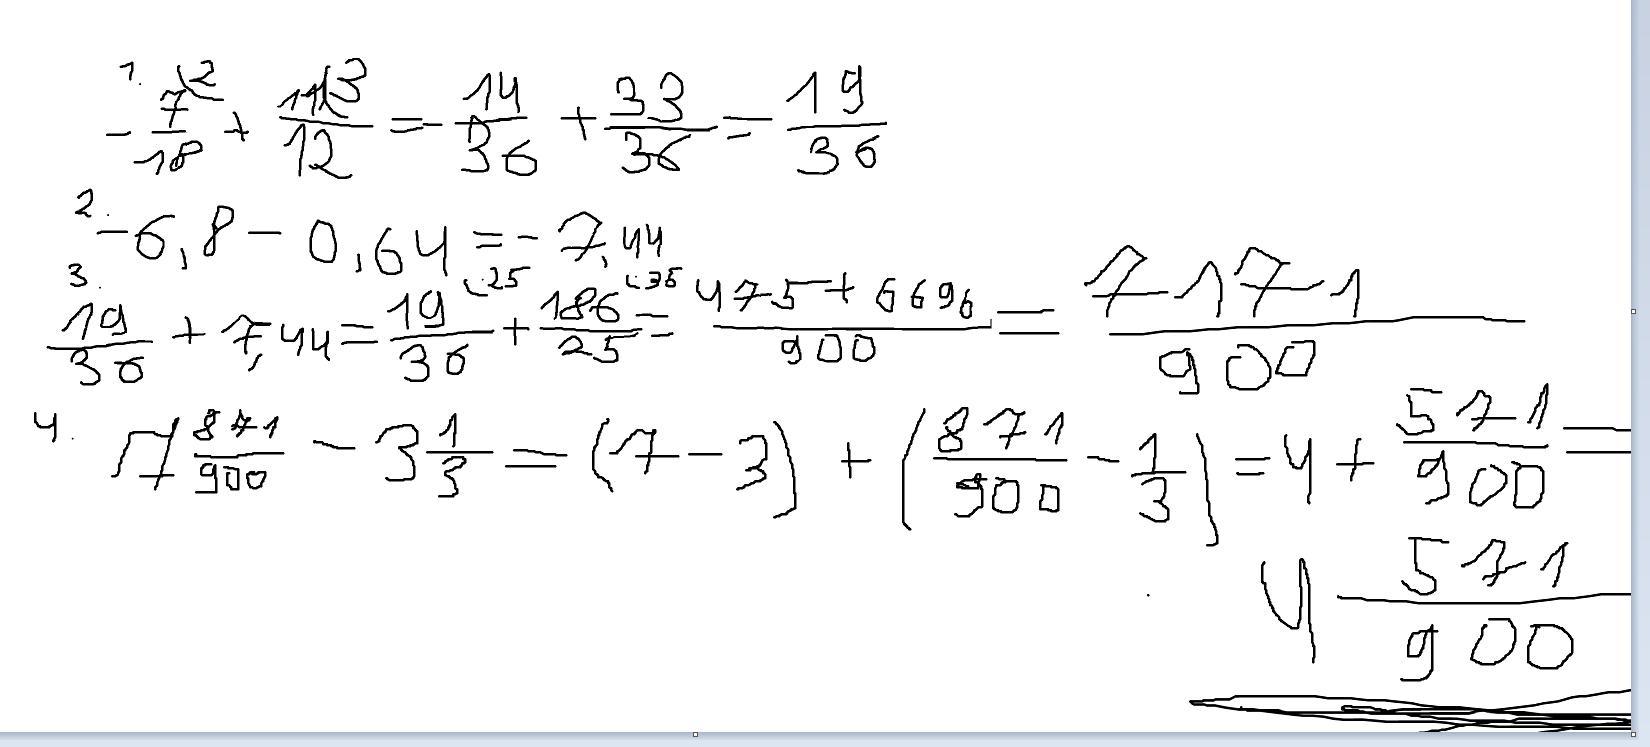 1. -7/18 \2 + 11/12 \3 = -14/36 + 33/36 = 19/36
2. -6,8 - 0,64 = -7,44
3. 19/36 + 7,44 = 19/36 \.25 + 186/25 \.36 = (475 + 6696)/900 = 7171/900
4. 7 871/900 - 3 1/3 = (7 - 3) + (871/900 - 1/3) = 4 + 571/900 =
4 571/900